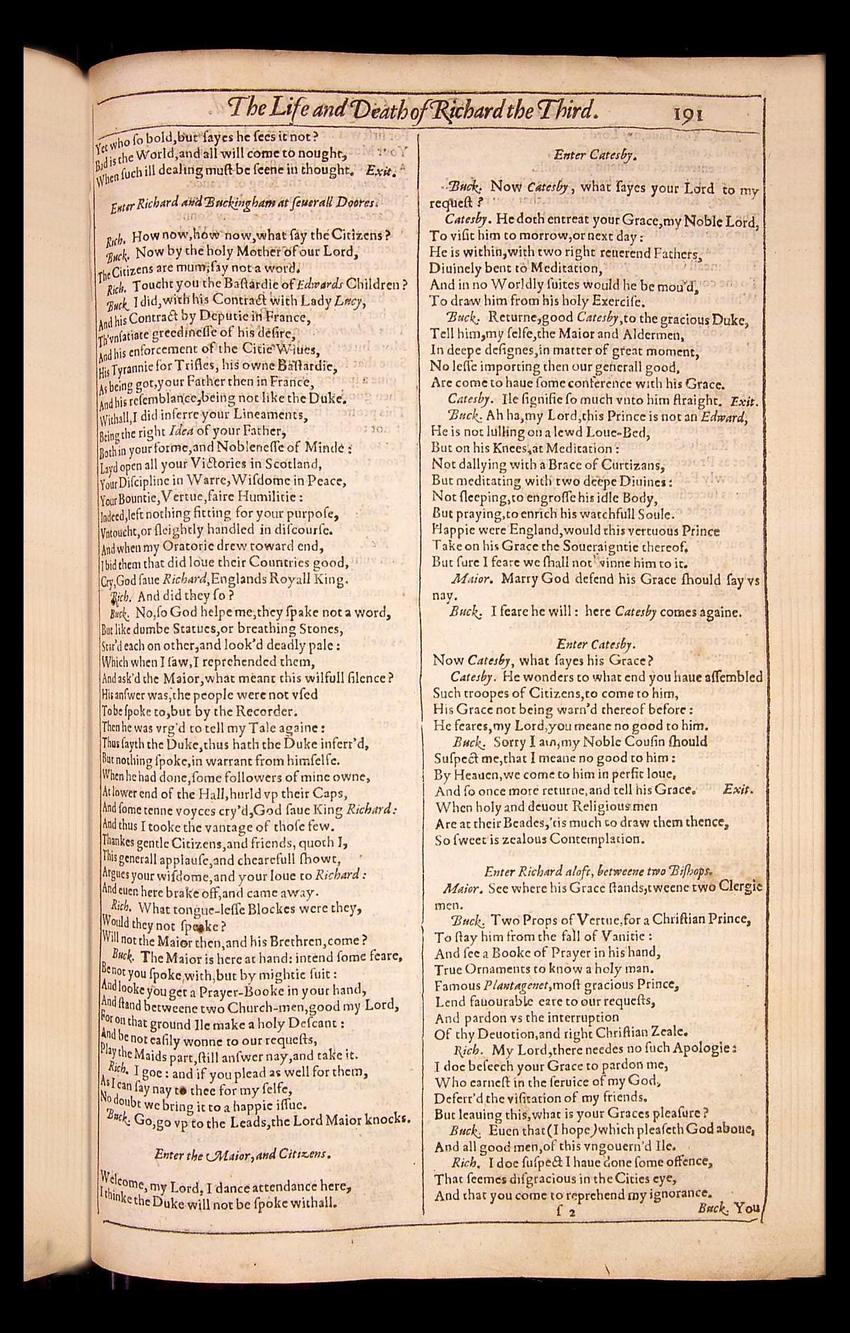 The Life and Death of Richard the Third. 191
Yet who ſo bold,but ſayes he ſees it not?
Bad is the World,and all will come to nought,
When ſuch ill dealing muſt be ſeene in thought. Exit.
Enter Richard and Buckingham at ſeuerall Doores.
Rich. How now,how now,what ſay the Citizens?
Buck. Now by the holy Mother of our Lord,
The Citizens are mum,ſay not a word.
Rich. Toucht you the Baſtardie of Edwards Children?
Buck. I did,with his Contract with Lady Lucy,
And his Contract by Deputie in France,
Th'vnſatiate greedineſſe of his deſire,
And his enforcement of the Citie Wiues,
His Tyrannie for Trifles, his owne Baſtardie,
As being got,your Father then in France,
And his reſemblance,being not like the Duke.
Withall,I did inferre your Lineaments,
Being the right Idea of your Father,
Both in your forme,and Nobleneſſe of Minde:
Layd open all your Victories in Scotland,
Your Diſcipline in Warre,Wiſdome in Peace,
Your Bountie,Vertue,faire Humilitie:
Indeed,left nothing fitting for your purpoſe,
Vntoucht,or ſleightly handled in diſcourſe.
And when my Oratorie drew toward end,
I bid them that did loue their Countries good,
Cry,God ſaue Richard,Englands Royall King.
Rich. And did they ſo?
Buck. No,ſo God helpe me,they ſpake not a word,
But like dumbe Statues,or breathing Stones,
Star'd each on other,and look'd deadly pale:
Which when I ſaw,I reprehended them,
And ask'd the Maior,what meant this wilfull ſilence?
His anſwer was,the people were not vſed
To be ſpoke to,but by the Recorder.
Then he was vrg'd to tell my Tale againe:
Thus ſayth the Duke,thus hath the Duke inferr'd,
But nothing ſpoke,in warrant from himſelfe.
When he had done,ſome followers of mine owne,
At lower end of the Hall,hurld vp their Caps,
And ſome tenne voyces cry'd,God ſaue King Richard:
And thus I tooke the vantage of thoſe few.
Thankes gentle Citizens,and friends, quoth I,
This generall applauſe,and chearefull ſhowt,
Argues your wiſdome,and your loue to Richard:
And euen here brake off,and came away.
Rich. What tongue-leſſe Blockes were they,
Would they not ſpeake?
Will not the Maior then,and his Brethren,come?
Buck. The Maior is here at hand: intend ſome feare,
Be not you ſpoke with,but by mightie ſuit:
And looke you get a Prayer-Booke in your hand,
And ſtand betweene two Church-men,good my Lord,
For on that ground Ile make a holy Deſcant:
And be not eaſily wonne to our requeſts,
Play the Maids part,ſtill anſwer nay,and take it.
Rich. I goe: and if you plead as well for them,
As I can ſay nay to thee for my ſelfe,
No doubt we bring it to a happie iſſue.
Buck. Go,go vp to the Leads,the Lord Maior knocks.
Enter the Maior,and Citizens.
Welcome,my Lord, I dance attendance here,
I thinke the Duke will not be ſpoke withall.
Enter Catesby.
Buck. Now Catesby, what ſayes your Lord to my
requeſt?
Catesby. He doth entreat your Grace,my Noble Lord,
To viſit him to morrow,or next day:
He is within,with two right reuerend Fathers,
Diuinely bent to Meditation,
And in no Worldly ſuites would he be mou'd,
To draw him from his holy Exerciſe.
Buck. Returne,good Catesby,to the gracious Duke,
Tell him,my ſelfe,the Maior and Aldermen,
In deepe deſignes,in matter of great moment,
No leſſe importing then our generall good,
Are come to haue ſome conference with his Grace.
Catesby. Ile ſignifie ſo much vnto him ſtraight. Exit.
Buck. Ah ha,my Lord,this Prince is not an Edward,
He is not lulling on a lewd Loue-Bed,
But on his Knees,at Meditation:
Not dallying with a Brace of Curtizans,
But meditating with two deepe Diuines:
Not ſleeping,to engroſſe his idle Body,
But praying,to enrich his watchfull Soule.
Happie were England,would this vertuous Prince
Take on his Grace the Soueraigntie thereof.
But ſure I feare we ſhall not winne him to it.
Maior. Marry God defend his Grace ſhould ſay vs
nay.
Buck. I feare he will: here Catesby comes againe.
Enter Catesby.
Now Catesby, what ſayes his Grace?
Catesby. He wonders to what end you haue aſſembled
Such troopes of Citizens,to come to him,
His Grace not being warn'd thereof before:
He feares,my Lord,you meane no good to him.
Buck. Sorry I am,my Noble Couſin ſhould
Suſpect me,that I meane no good to him:
By Heauen,we come to him in perfit loue,
And ſo once more returne,and tell his Grace. Exit.
When holy and deuout Religious men
Are at their Beades,'tis much to draw them thence,
So ſweet is zealous Contemplation.
Enter Richard aloft, betweene two Biſhops.
Maior. See where his Grace ſtands,tweene two Clergie
men.
Buck. Two Props of Vertue,for a Chriſtian Prince,
To ſtay him from the fall of Vanitie:
And ſee a Booke of Prayer in his hand,
True Ornaments to know a holy man.
Famous Plantagenet,moſt gracious Prince,
Lend fauourable eare to our requeſts,
And pardon vs the interruption
Of thy Deuotion,and right Chriſtian Zeale.
Rich. My Lord,there needes no ſuch Apologie:
I doe beſeech your Grace to pardon me,
Who earneſt in the ſeruice of my God,
Deferr'd the viſitation of my friends.
But leauing this,what is your Graces pleaſure?
Buck. Euen that (I hope) which pleaſeth God aboue,
And all good men,of this vngouern'd Ile.
Rich. I doe ſuſpect I haue done ſome offence,
That ſeemes diſgracious in the Cities eye,
And that you come to reprehend my ignorance.
ſ 2 Buck. You